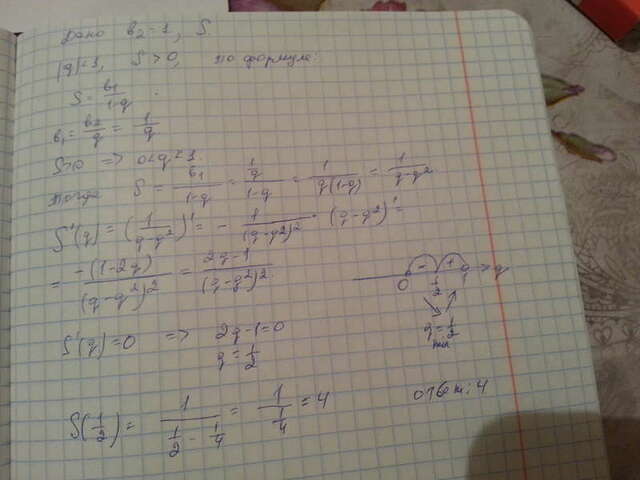 Дано b₂=1, S
|q|<1, S>0, по формуле:
S = b₁/(1-q).
b₁ = b₂/q = 1/q
S>0 => 0<q<1.
Тогда S = b₁/(1-q) = (1/q)/(1-q) = 1/(q(1-q)) = 1/(q-q²)
S'(q) = (1/(q-q²))' = - 1/(q-q²)² · (q-q²)' =
= -(1-2q)/(q-q²)² = (2q-1)/(q-q²)².
0 - 1/2 + 1 > q
q = 1/2
min
S'(q)=0 => 2q-1=0
q = 1/2
S(1/2) = 1/(1/2 - 1/4) = 1/(1/4) = 4
ответ: 4